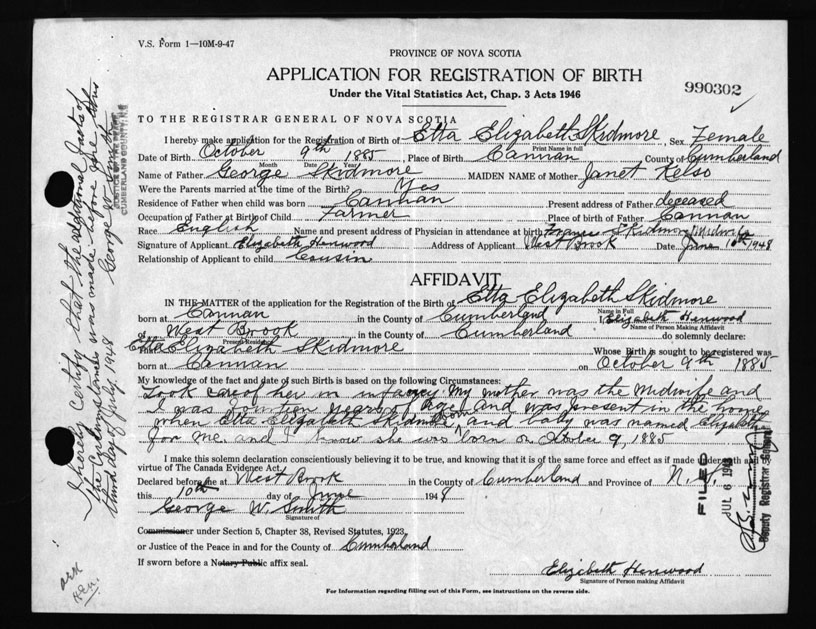 V.S. Form 1—10M-9-47
PROVINCE OF NOVA SCOTIA
APPLICATION FOR REGISTRATION OF BIRTH
990302
Under the Vital Statistics Act, Chap. 3 Acts 1946
TO THE REGISTRAR GENERAL OF NOVA SCOTIA
I hereby make application for the Registration of Birth of Etta Elizabeth Skidmore, Sex Female
Print Name in full
Date of Birth October 9th 1885, Place of Birth Cannan County of Cumberland
Month Date Year
Name of Father George Skidmore MAIDEN NAME of Mother Janet Kelso
Were the Parents married at the time of the Birth? Yes
Residence of Father when child was born Cannan Present address of Father deceased
Occupation of Father at Birth of Child Farmer Place of birth of Father Cannan
Race English Name and present address of Physician in attendance at birth Skidmore Midwife
Signature of Applicant Elizabeth Henwood Address of Applicant West Brook Date June 10th 1948
Relationship of Applicant to child Cousin
AFFIDAVIT
IN THE MATTER of the application for the Registration of the Birth of Etta Elizabeth Skidmore
Name in Full
born at Cannan in the County of Cumberland I, Elizabeth Henwood
Name of Person Making Affidavit
of West Brook in the County of Cumberland do solemnly declare:
Present Residence
That Etta Elizabeth Skidmore Whose Birth is sought to be registered was
born at Cannan on October 9th 1885
My knowledge of the fact and date of such Birth is based on the following Circumstances:
Took care of her in infancy My mother was the Midwife and
I was years of age and was present in the
when Etta Elizabeth Skidmore born and baby was named Elizabeth
for me. and I know she was born on October 9, 1885
I make this solemn declaration conscientiously believing it to be true, and knowing that it is of the same force and effect as if made under oath and
virtue of The Canada Evidence Act.
Declared before me at West Brook in the County of Cumberland and Province of N.S.
this 10th day of June 1948
George W. Smith
Signature of
Commissioner under Section 5, Chapter 38, Revised Statutes, 1923,
or Justice of the Peace in and for the County of Cumberland
If sworn before a Notary Public affix seal.
Elizabeth Henwood
Signature of Person making Affidavit
For Information regarding filling out of this Form, see instructions on the reverse side.
I hereby certify that the additional facts of
the was made before me this
third day of July 1948
George W. Smith
CUMBERLAND COUNTY, N.S.
FILED
JUL 6 1948
Deputy Registrar General